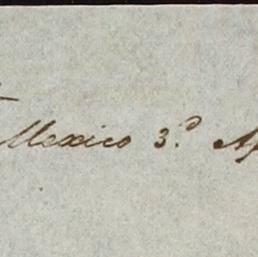 Mexico 3.d Ap